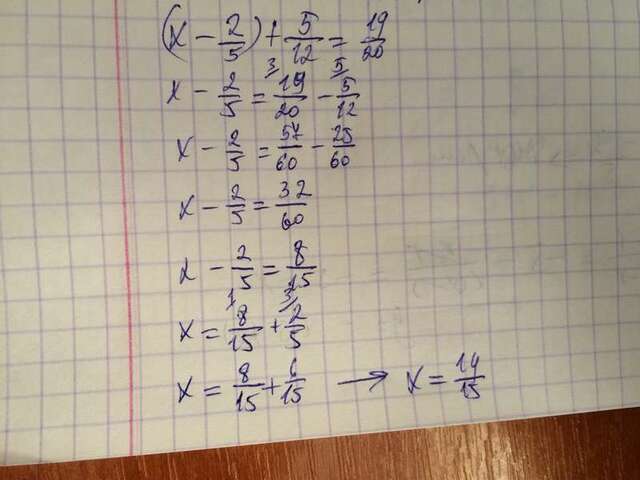 (x - 2/5) + 5/12 = 19/20
x - 2/5 = 19/20 - 5/12
x - 2/5 = 57/60 - 25/60
x - 2/5 = 32/60
x - 2/5 = 8/15
x = 8/15 + 2/5
x = 8/15 + 6/15 → x = 14/15